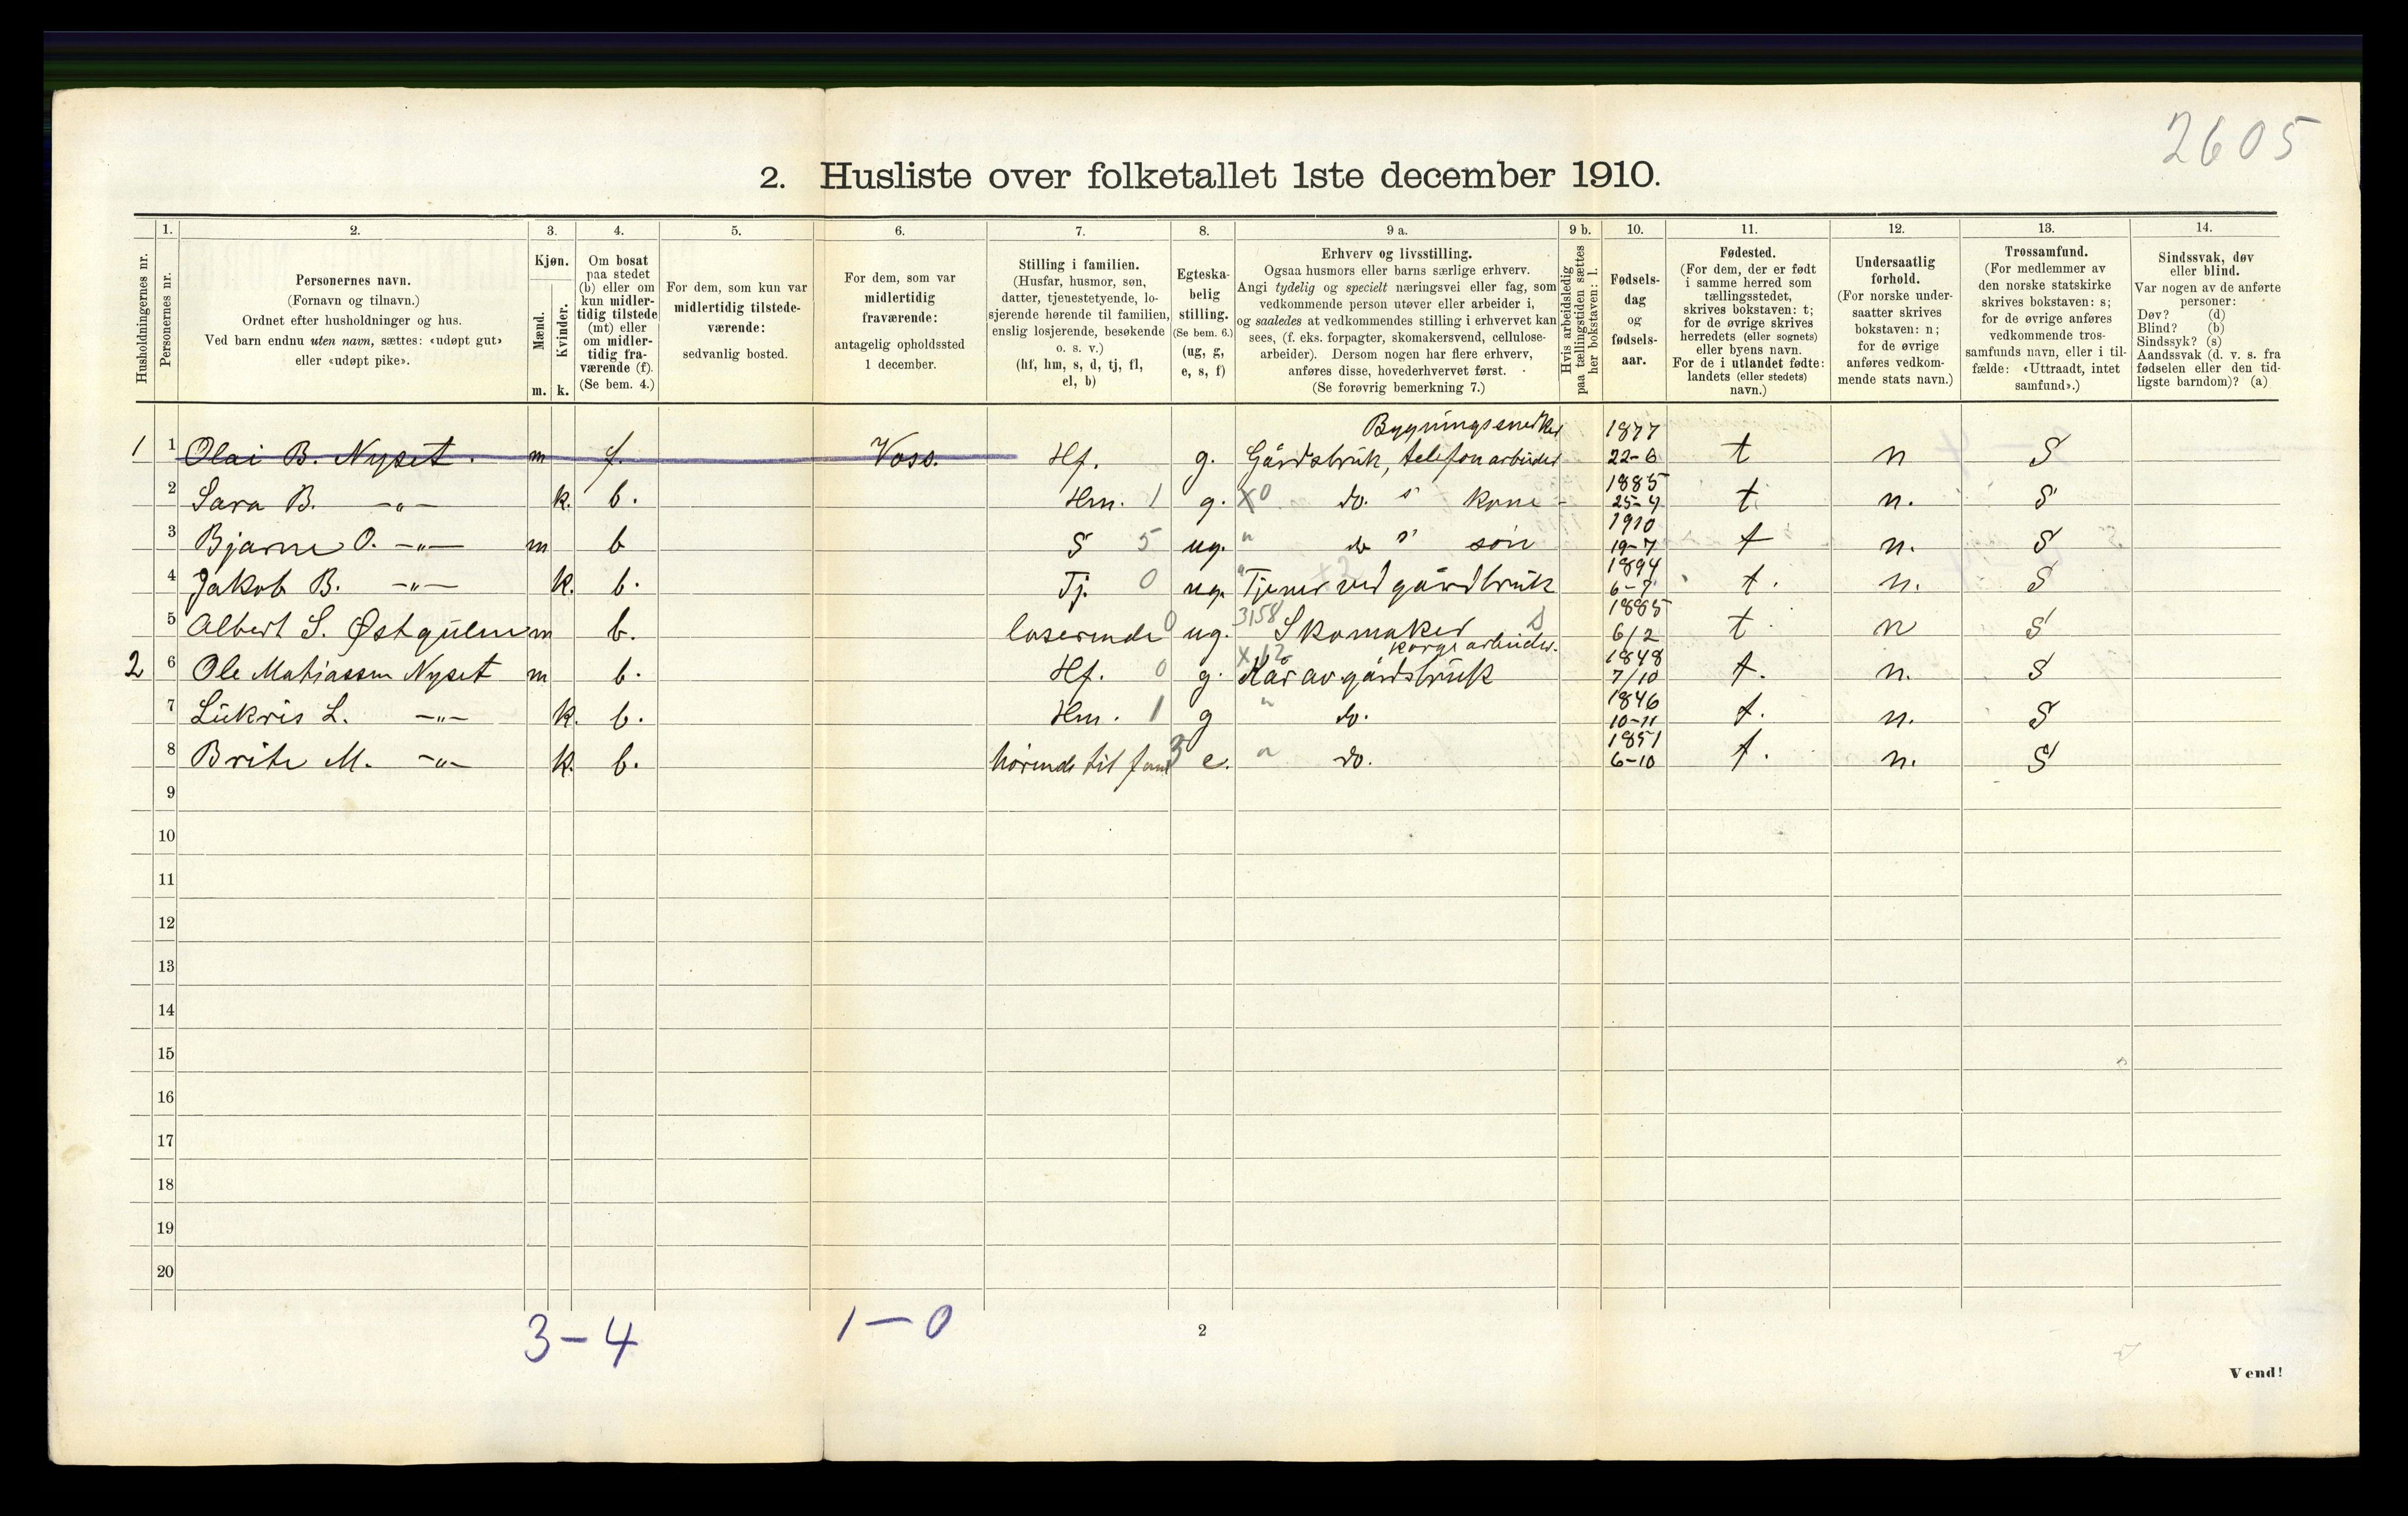 2605
2. Husliste over folketallet 1ste december 1910.
Husholdningernes nr.
1. Personernes nr.
2. Personernes navn.
(Fornavn og tilnavn.)
Ordnet efter husholdninger og hus.
Ved barn endnu uten navn, sættes: «udøpt gut»
eller «udøpt pike».
3. Kjøn.
Mænd. m.
Kvinder. k.
4. Om bosat
paa stedet
(b) eller om
kun midler-
tidig tilstede
(mt) eller
om midler-
tidig fra-
værende (f).
(Se bem. 4.)
5. For dem, som kun var
midlertidig tilstede-
værende:
sedvanlig bosted.
6. For dem, som var
midlertidig
fraværende:
antagelig opholdssted
1 december.
7. Stilling i familien.
(Husfar, husmor, søn,
datter, tjenestetyende, lo-
sjerende hørende til familien,
enslig losjerende, besøkende
o. s. v.)
(hf, hm, s, d, tj, fl,
el, b)
8. Egteska-
belig
stilling.
(Se bem. 6.)
(ug, g,
e, s, f)
9 a. Erhverv og livsstilling.
Ogsaa husmors eller barns særlige erhverv.
Angi tydelig og specielt næringsvei eller fag, som
vedkommende person utøver eller arbeider i,
og saaledes at vedkommendes stilling i erhvervet kan
sees, (f. eks. forpagter, skomakersvend, cellulose-
arbeider). Dersom nogen har flere erhverv,
anføres disse, hovederhvervet først.
(Se forøvrig bemerkning 7.)
9 b. Hvis arbeidsledig
paa tællingstiden sættes
her bokstaven: l.
10. Fødsels-
dag
og
fødsels-
aar.
11. Fødested.
(For dem, der er født
i samme herred som
tællingsstedet,
skrives bokstaven: t;
for de øvrige skrives
herredets (eller sognets)
eller byens navn.
For de i utlandet fødte:
landets (eller stedets)
navn.)
12. Undersaatlig
forhold.
(For norske under-
saatter skrives
bokstaven: n;
for de øvrige
anføres vedkom-
mende stats navn.)
13. Trossamfund.
(For medlemmer av
den norske statskirke
skrives bokstaven: s;
for de øvrige anføres
vedkommende tros-
samfunds navn, eller i til-
fælde: «Uttraadt, intet
samfund».)
14. Sindssvak, døv
eller blind.
Var nogen av de anførte
personer:
Døv? (d)
Blind? (b)
Sindssyk? (s)
Aandssvak (d. v. s. fra
fødselen eller den tid-
ligste barndom)? (a)
Bygningssnedker 1877
1 1 Olai B. Nyset. m f. Voss. Hf. g. Gårdsbruk, telefonarbeider 22-6 t n S
1885
2 Sara B. -"- k. b. Hm. 1 g. x0 do. s kone 25-4 t. n. S
1910
3 Bjarne O. -"- m b S 5 ug. " do s søn 19-7 t n. S
1894
4 Jakob B. -"- k. b. Tj. 0 ug. " Tjener ved gårdbruk 6-7 t. n. S
3158 1885
5 Albert S. Østgulen m b. loserende 0 ug. Skomaker 6/2 t. n S
x12 korgearbeider. 1848
2 6 Ole Mathiassen Nyset m b. Hf. 0 g. Kår av gårdsbruk 7/10 t. n. S
1846
7 Lukris L. -"- k. b. Hm. 1 g " do. 10-11 t. n. S
1851
8 Brite M. -"- k. b. hörende til fam 3 e. " do. 6-10 t. n. S
9
10
11
12
13
14
15
16
17
18
19
20
3-4 1-0
2
Vend!